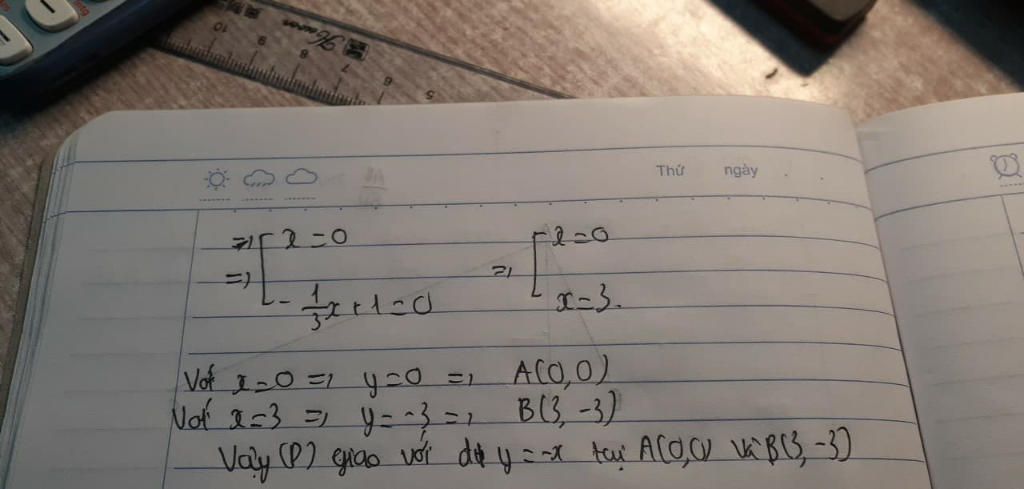 10 9 8 7 6 5
Thứ ngày
=> x = 0
=> => x = 0
- 1/3 x + 1 = 0 x = 3.
Với x = 0 => y = 0 => A(0,0)
Với x = 3 => y = -3 => B(3, -3)
Vậy (P) giao với đt y = -x tại A(0,0) và B(3, -3)